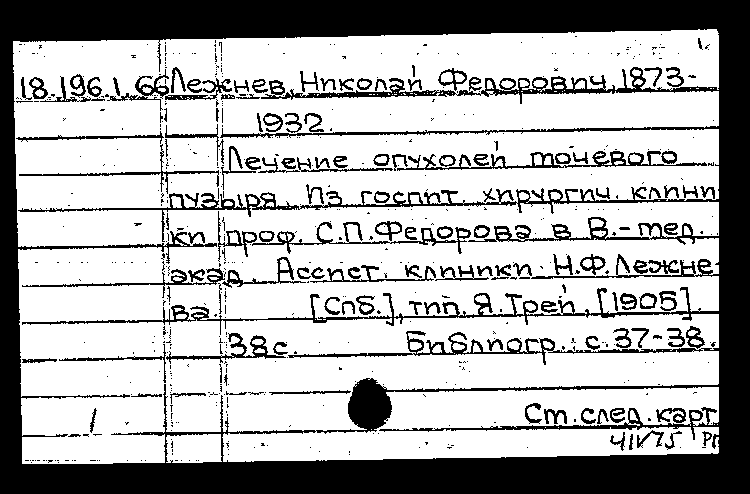 18.196.1.66 Лежнев, Николай Федорович, 1873-
1932.
Лечение опухолей мочевого
пузыря. Из госпит. хирургич. клини-
ки проф. С.П.Федорова в В.-мед.
акад. Ассист. клиники Н.Ф.Лежне-
ва. [Спб.], тип. Я.Трей, [1905].
38с. Библиогр.: с.37-38.
См.след.карт